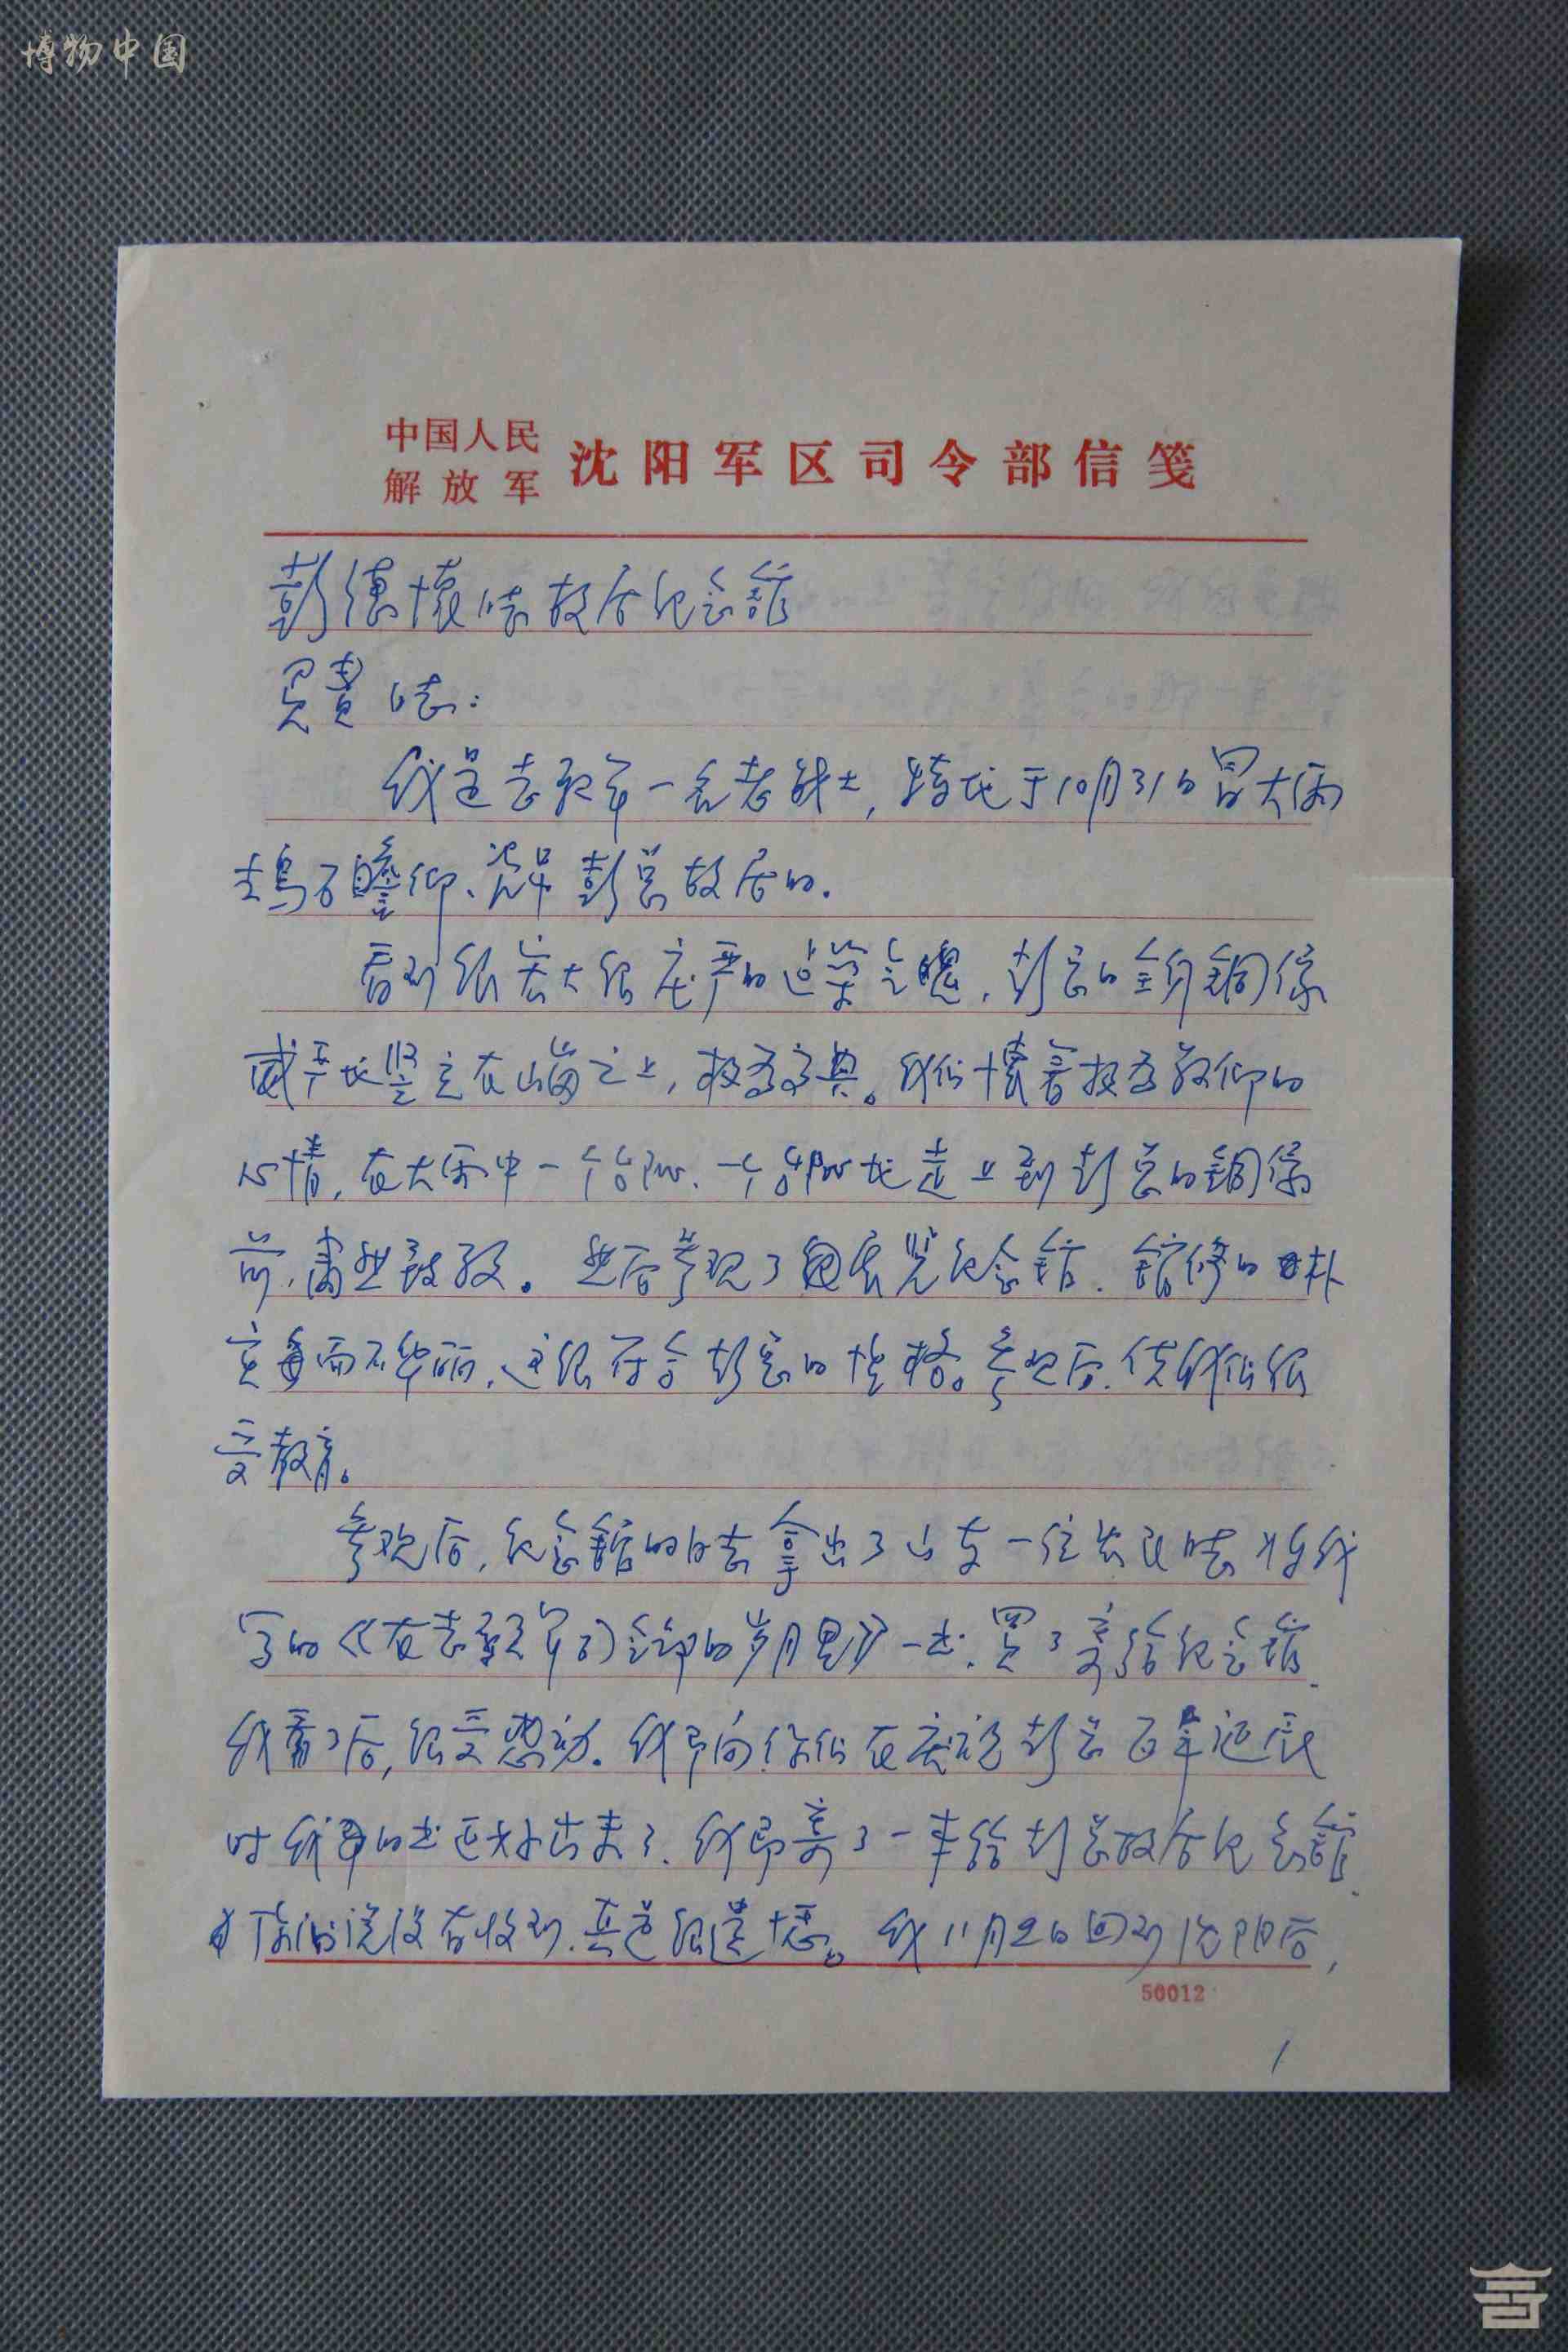 博物中国
中国人民
解放军
沈阳军区司令部信笺
彭德怀同志故居纪念馆
负责同志:
我是志愿军一名老战士,特地于10月31日冒大雨
去乌石瞻仰、彭总故居的.
看到很宏大很庄严的建筑,彭总的全身铜像
威严地竖立在山岗之上,极为。我们怀着极为敬仰的
心情,在大雨中一个台阶、一个台阶地走上到彭总的铜像
前,肃然致敬。然后参观了展览纪念馆.馆修的朴
实而不华丽,这很符合彭总的性格。参观后,使我们很
受教育。
参观后,纪念馆的同志拿出了山东一位农民同志将我
写的《在志愿军司令部的岁月里》一书,买了寄给纪念馆.
我看了后,很受感动。我即向你们在庆祝彭总百年诞辰
时我写的书正好出来了.我即寄了一本给彭总故居纪念馆.
你们说没有收到.真是很遗憾。我11月2日回到沈阳后,
50012
1